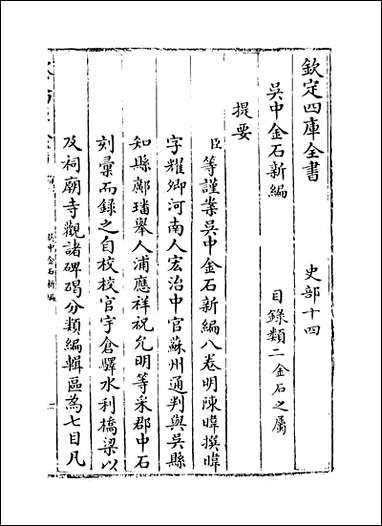 欽定四庫全書 史部十四
吳中金石新編 目錄類二金石之屬
提要
臣等謹案吳中金石新編八卷明陳暐撰暐
字耀卿河南人宏治中官蘇州通判與吳縣
知縣鄺璠舉人浦應祥祝允明等采郡中石
刻彙而錄之自校校官宇倉驛水利橋梁以
及祠廟寺觀諸碑碣分類編輯區為七目凡
吳中金石新編